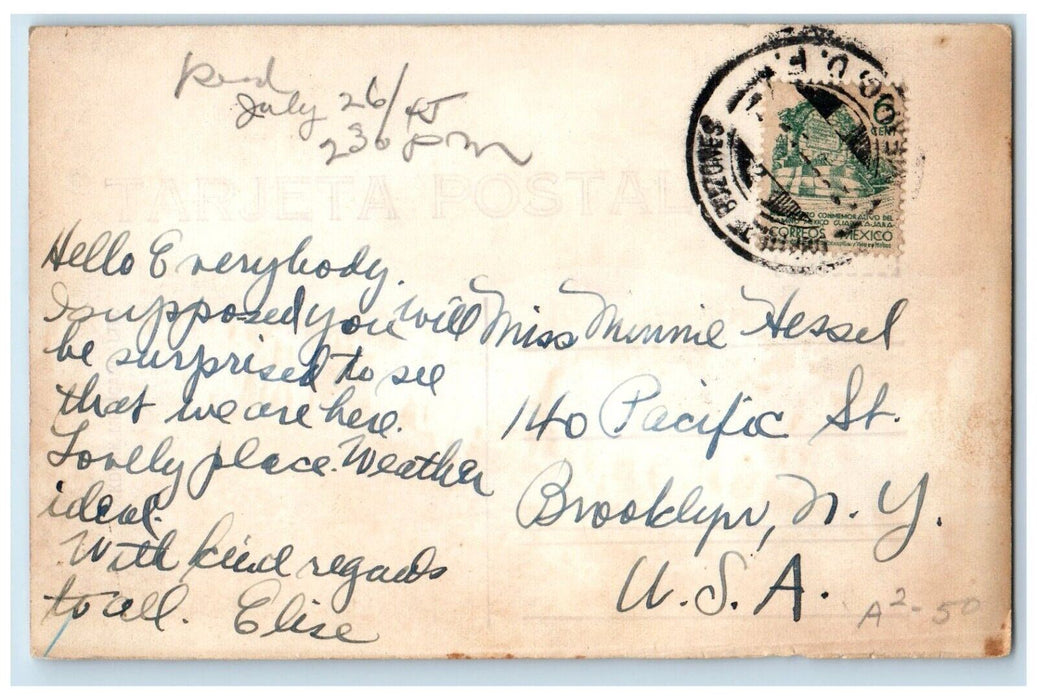 Recd
July 26/45
2 30 pm
TARJETA POSTAL
BUZONES
CONMEMORATIVO DEL
MEXICO GUADALAJARA
CORREOS MEXICO
Hello Everybody.
I supposed you will
be surprised to see
that we are here.
Lovely place. Weather
ideal.
With kind regards
to all. Elise
Miss Minnie Hessel
140 Pacific St.
Brooklyn, N. Y.
U. S. A.
A2-50